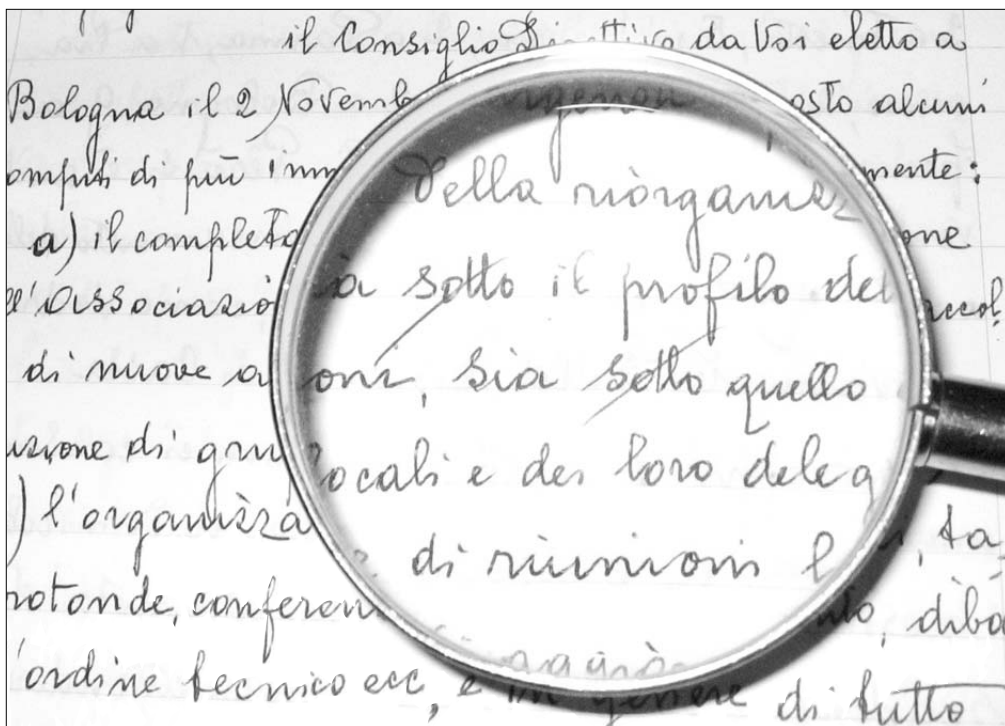 il Consiglio Direttivo da Voi eletto a
Bologna il 2 Novemb osto alcuni
ompiti di più imm mente:
della riorganizz
a) il completa one
ll'Associazio ià sotto il profilo del accol
di nuove a oni, sia sotto quello
uzione di grup locali e dei loro deleg
) l'organizza di riunioni l i, ta
rotonde, conferen nto, diba
'ordine tecnico ecc, e in genere di tutto